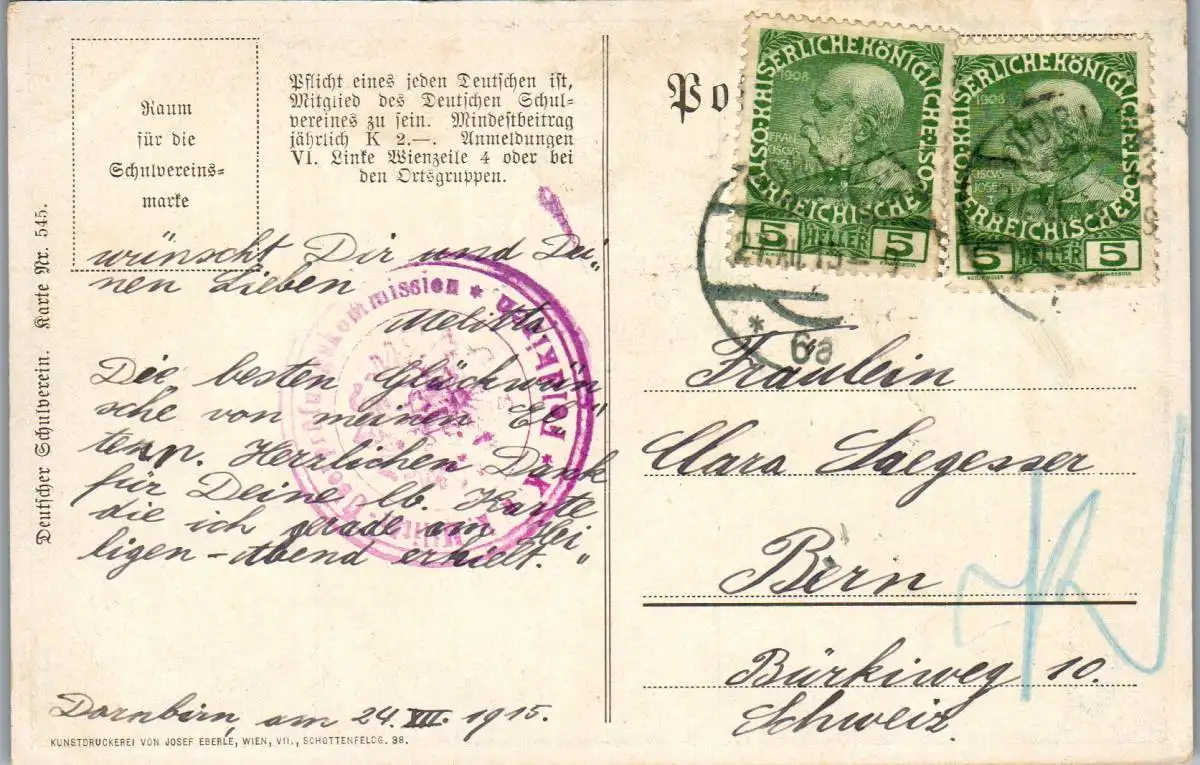 Raum
für die
Schulvereins-
marke
Pflicht eines jeden Deutschen ist,
Mitglied des Deutschen Schul-
vereines zu sein. Mindestbeitrag
jährlich K 2.—. Anmeldungen
VI. Linke Wienzeile 4 oder bei
den Ortsgruppen.
Deutscher Schulverein. Karte Nr. 545.
wünscht Dir und Dei„
nen Lieben
Melitta.
Die besten Glückwün
sche von meinen El„
tern. Herzlichen Dank
für Deine lb. Karte
die ich gerade am Hei
ligen-abend erhielt."
Dornbirn, am 24. XII. 1915.
KUNSTDRUCKEREI VON JOSEF EBERLE, WIEN, VII., SCHOTTENFELDG. 38.
kommission * Feldkirch * K.
Po
KAISERLICHE KÖNIGLICHE ÖSTERREICHISCHE POST
1908
FRAN
CISCUS
JOSEPH I
5 HELLER 5
KAISERLICHE KÖNIGLICHE ÖSTERREICHISCHE POST
1908
CISCUS
JOSEPH I
5 HELLER 5
* 6a
Fräulein
Clara Saegesser
Bern
Bürkiweg 10.
Schweiz.